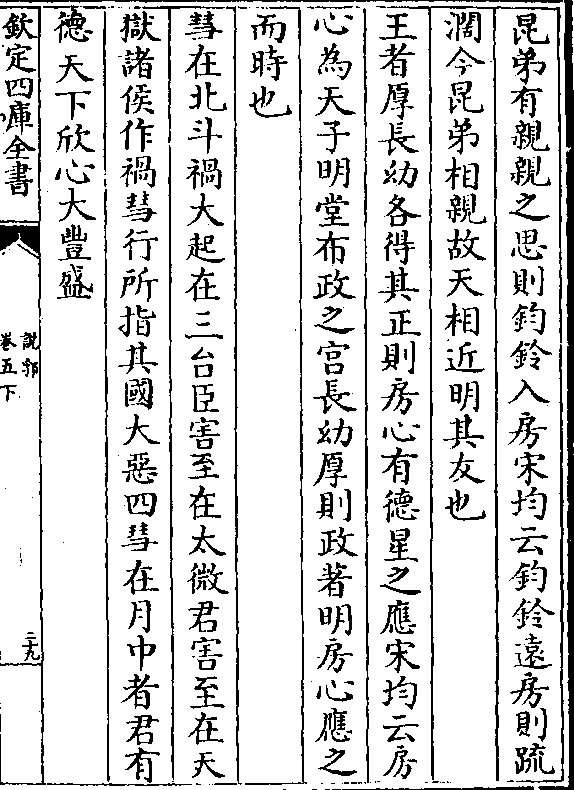 昆弟有親親之思則鈎鈴入房宋均云鈎鈴遠房則疏
濶今昆弟相親故天相近明其友也
王者厚長幼各得其正則房心有德星之應宋均云房
心為天子明堂布政之宫長幼厚則政著明房心應之
而時也
彗在北斗禍大起在三台臣害至在太微君害至在天
獄諸侯作禍彗行所指其國大惡四彗在月中者君有
德天下欣心大豐盛
欽定四庫全書
說郛
卷五下
二十九